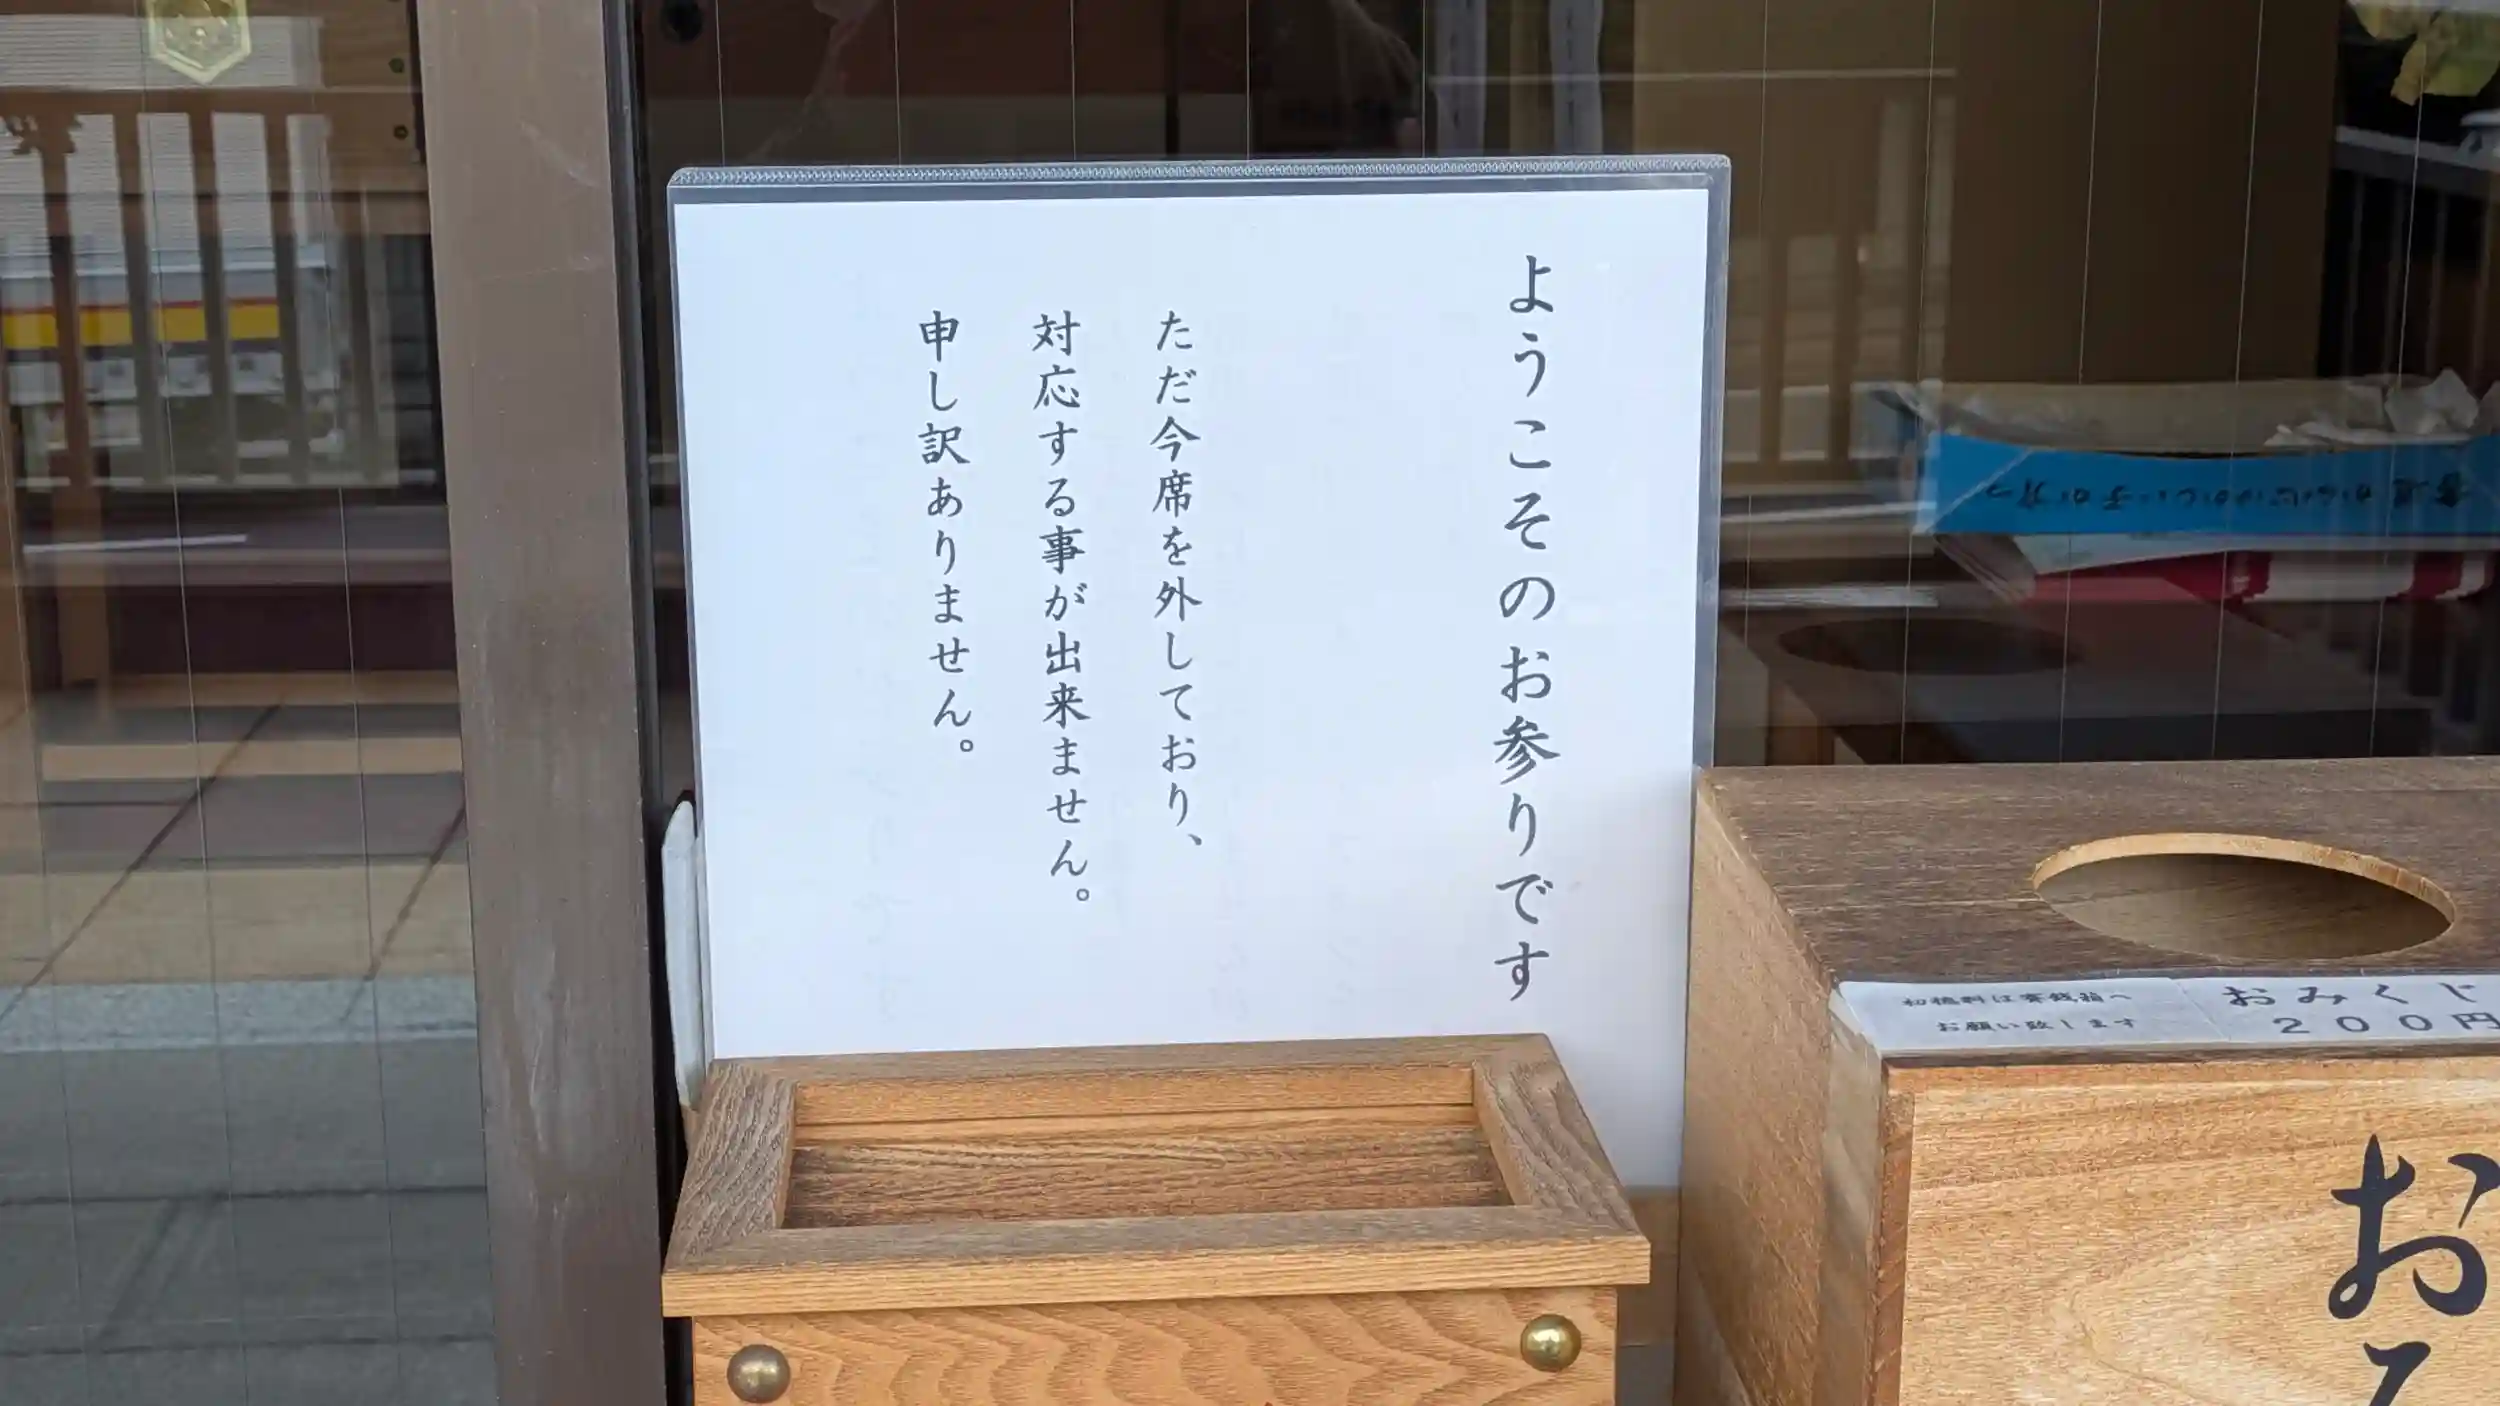 ようこそのお参りです
ただ今席を外しており、
対応する事が出来ません。
申し訳ありません。
初穂料は賽銭箱へ
お願い致します
おみくじ
200円
お